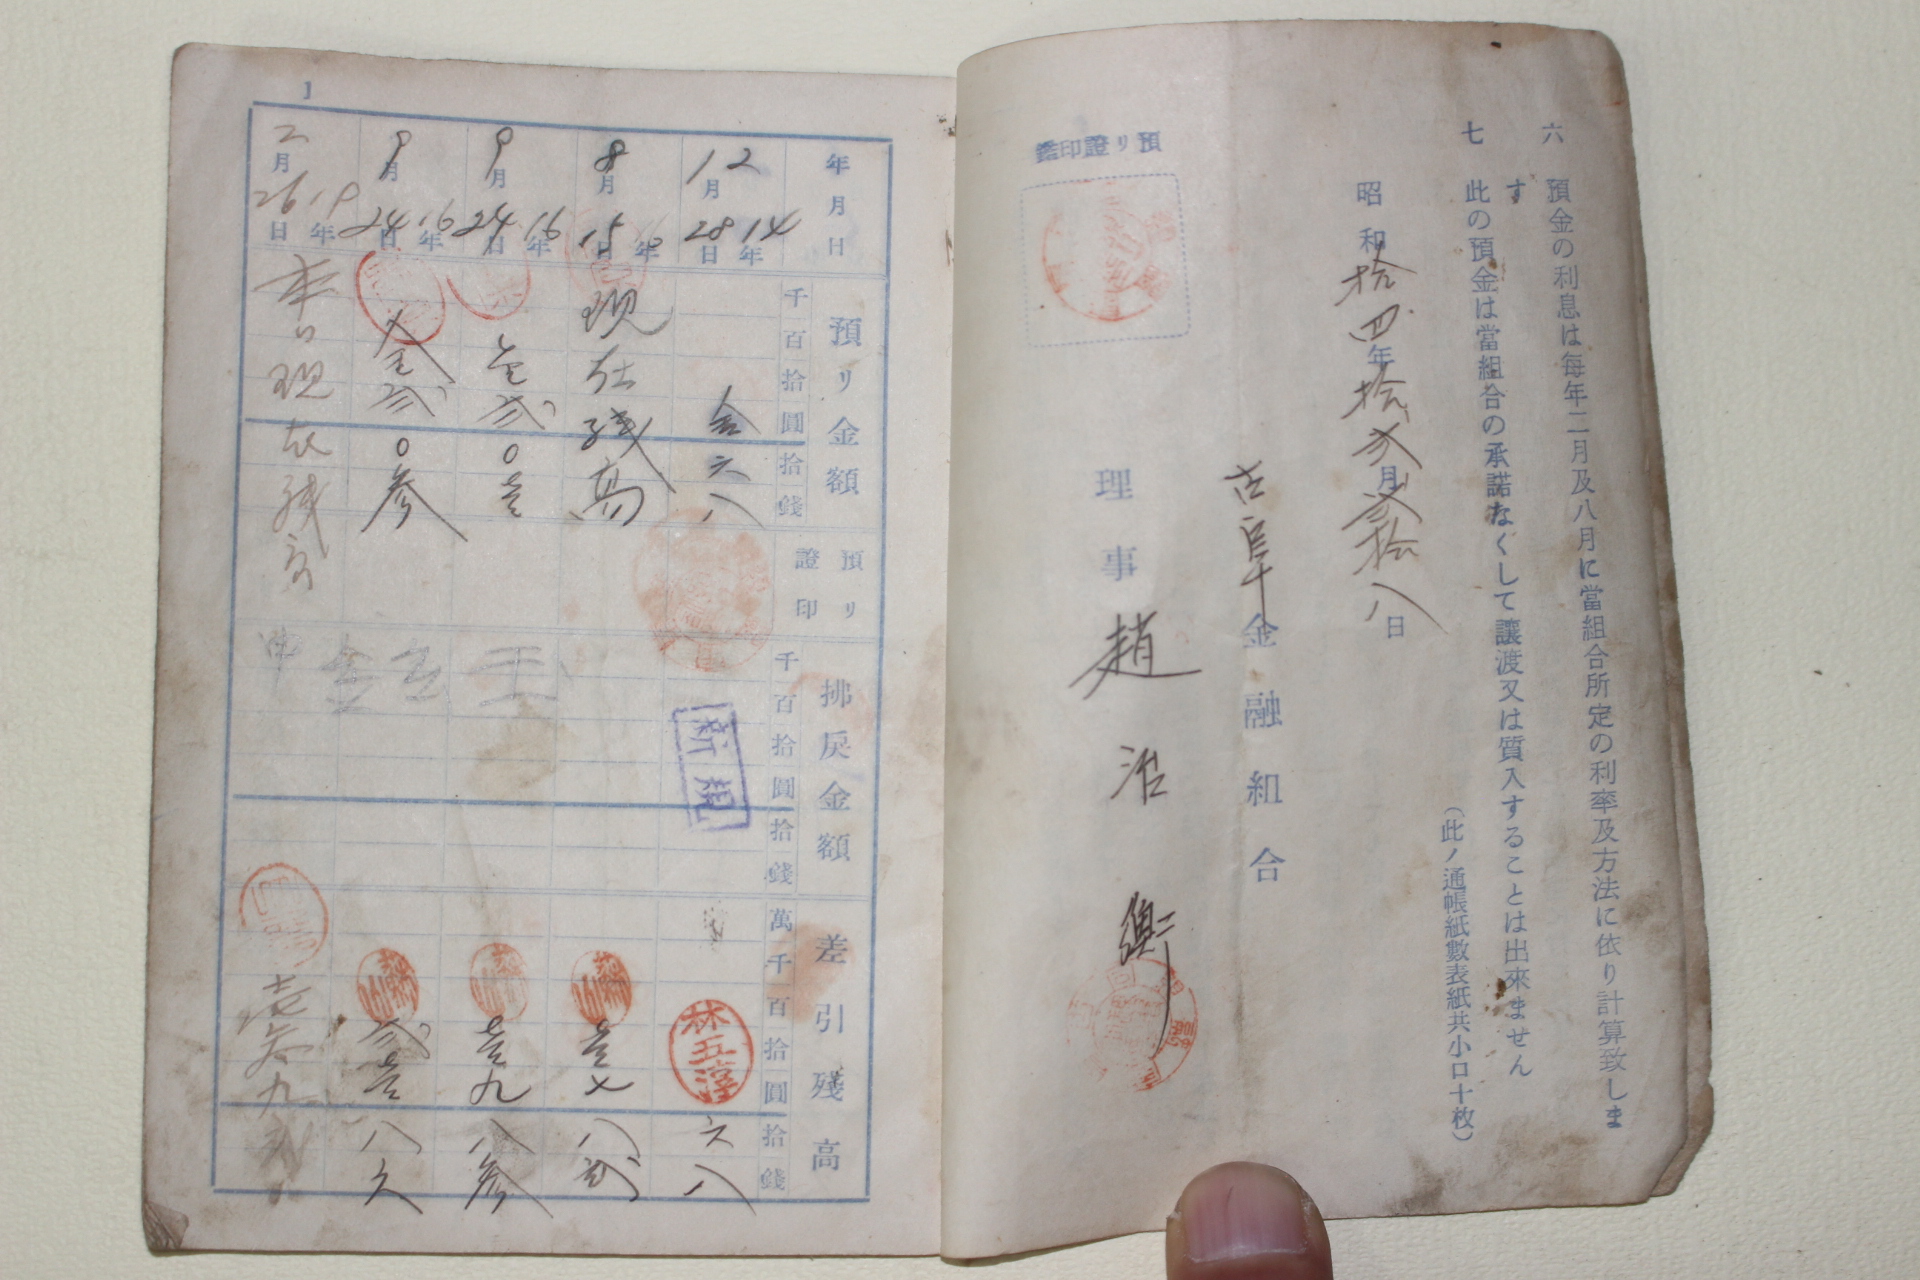 六 預金の利息は每年二月及八月に當組合所定の利率及方法に依り計算致しま
す
七 此の預金は當組合の承諾なくして讓渡又は質入することは出來ません
(此ノ通帳紙數表紙共小口十枚)
昭和拾四年拾貳月貳拾八日
古阜金融組合
理事 趙治衡
預リ證印鑑
1
年月日
預リ金額
千百拾圓拾錢
預リ證印
拂戾金額
千百拾圓拾錢
差引殘高
萬千百拾圓拾錢
14年12月28日
金六八
新規
林五淳
六八
16年8月15日
現在殘高
壹七八貳
16年9月24日
壹貳0壹
壹九八參
16年9月24日
金壹貳0參
貳壹八六
19年2月26日
本日現在殘高